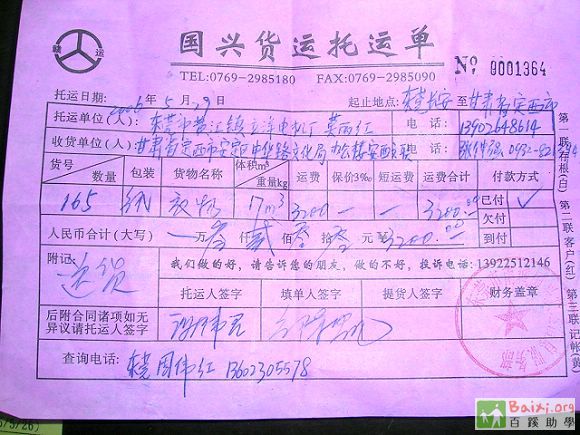 国兴货运托运单
TEL:0769-2985180 FAX:0769-2985090
№ 0001364
托运日期: 2006年5月29日 起止地点: 东莞长安至甘肃省定西市
托运单位(人): 东莞市黄江镇 电机厂 电话: 13902648614
收货单位(人): 甘肃省定西市安定区中华路文化局办公楼 电话:
货号 数量 包装 货物名称 体积m³ 重量kg 运费 保价3‰ 短运费 运费合计 付款方式
165 纸 17m³ 3200 — — 3200.00 已付 ✓
欠付
人民币合计(大写) 万叁仟贰佰零拾零元 ¥3200.00 到付
附记: 送货 我们做的好,请告诉您的朋友,做的不好,投诉电话:13922512146
托运人签字 填单人签字 提货人签字 财务盖章
后附合同诸项如无异议请托运人签字
查询电话: 东莞周伟红 13602305578
存根(白)第二联客户(红)第三联记帐(黄
Baixi.org
百蹊助學